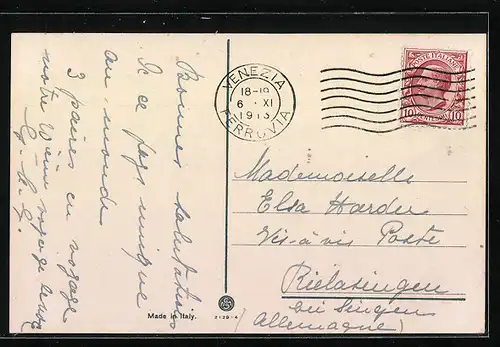 Bonnes salutations
de ce pays unique
au monde
3 paires en voyage
notre
VENEZIA
18-19
6 · XI
FERROVIA
POSTE ITALIANE
10 10
Mademoiselle
Elsa Harder
Vis-à-vis Poste
Rielasingen
bei Singen
(Allemagne)
Made in Italy.
2120-A